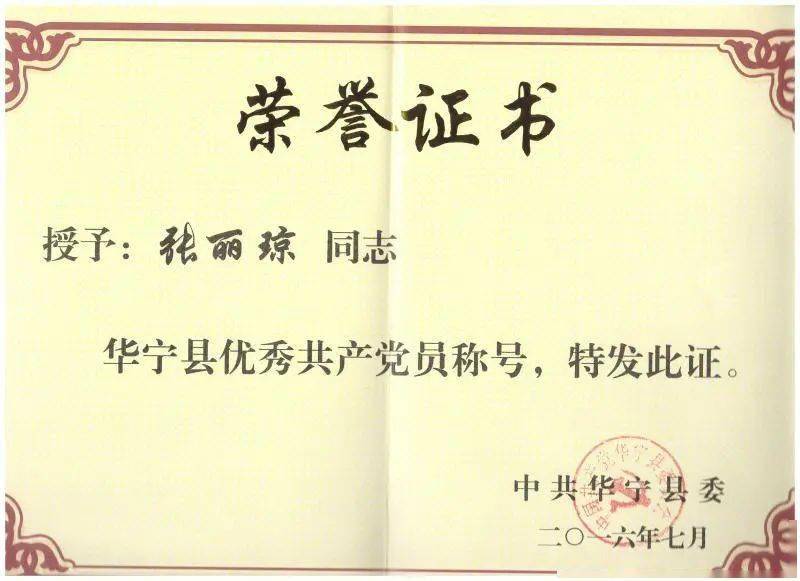 荣誉证书
授予：张丽琼 同志
华宁县优秀共产党员称号，特发此证。
中共华宁县委
二〇一六年七月